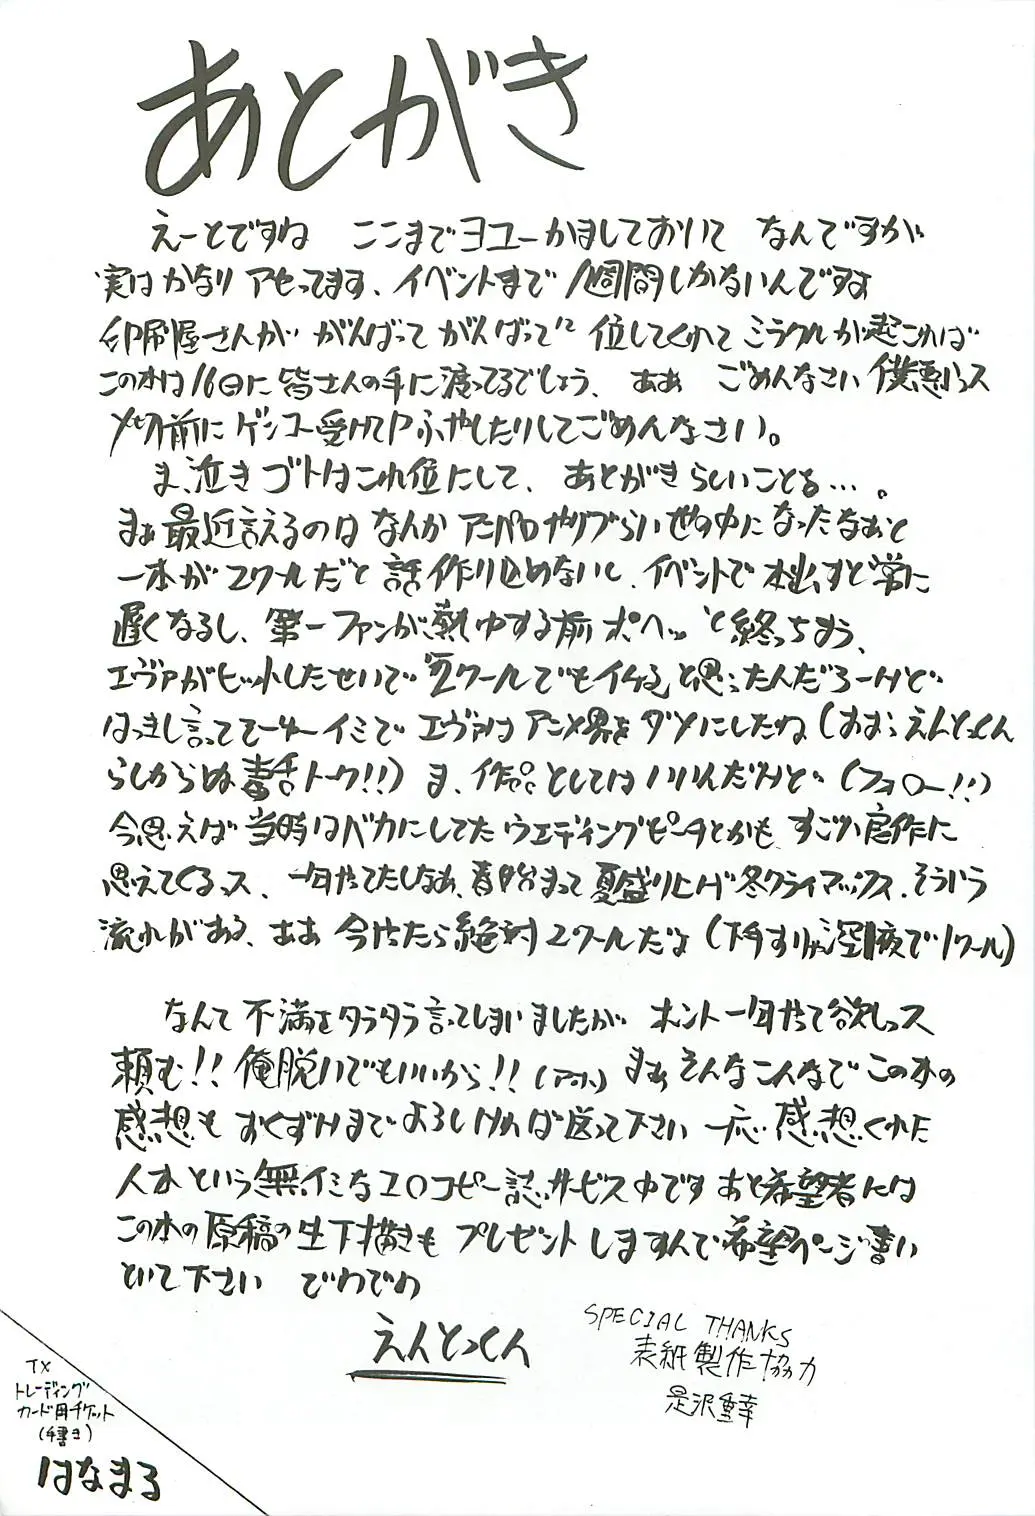 あとがき
えーとですね ここまでヨユーかましておいて なんですが
実はかなり アセってます、イベントまで 1週間しかないんですよ
印刷屋さんが がんばって がんばって 位してくれて ミラクルが起これば
この本は16日に皆さんの手に渡ってるでしょう、 ああ ごめんなさい 僕悪いっス
〆切前に ゲンコー受けてP ふやしたりしてごめんなさい。
ま、泣きゴトはこれ位にして、 あとがきらしいことを…。
まぁ 最近言えるのは なんか アニパロやりづらい世の中に なったなぁと
一本が2クールだと 話作り込めないし、イベントで 本出すと常に
遅くなるし、第一ファンが熱中する前 ポヘッ と終っちまう、
エヴァがヒットしたせいで "2クールでもイケる"と思ったんだろーけど
はっきし言って てーゆーイミで エヴァは アニメ界を ダメにしたね (おおっ えんとっくん
らしからぬ 毒舌トーク!!) ま、作品としては いいんだけど (フォロー!!)
今思えば 当時はバカにしてた ウエディングピーチとかも すごい名作に
思えてくるっス、 一年やってたしなぁ、春始まって 夏盛り上げ 冬クライマックス、そういう
流れがある、ああ 今やったら絶対 2クールだよ (下手すりゃ深夜で1クール)
なんて 不満を タラタラ 言ってしまいましたが ホント一年やって欲しっス
頼む!! 俺脱いでもいいから!! まぁ そんなこんなで この本の
感想も おくずけまで よろしければ 送って下さい 一応 感想くれた
人本 という 無イミな エロコピー誌サービス中です あと希望者には
この本の 原稿の 生下描きも プレゼント しますんで 希望ページ書い
といて下さい でわでわ
えんとっくん
SPECIAL THANKS
表紙製作協力
是沢重幸
TX
トレーディング
カード用チケット
(手書き)
はなまる